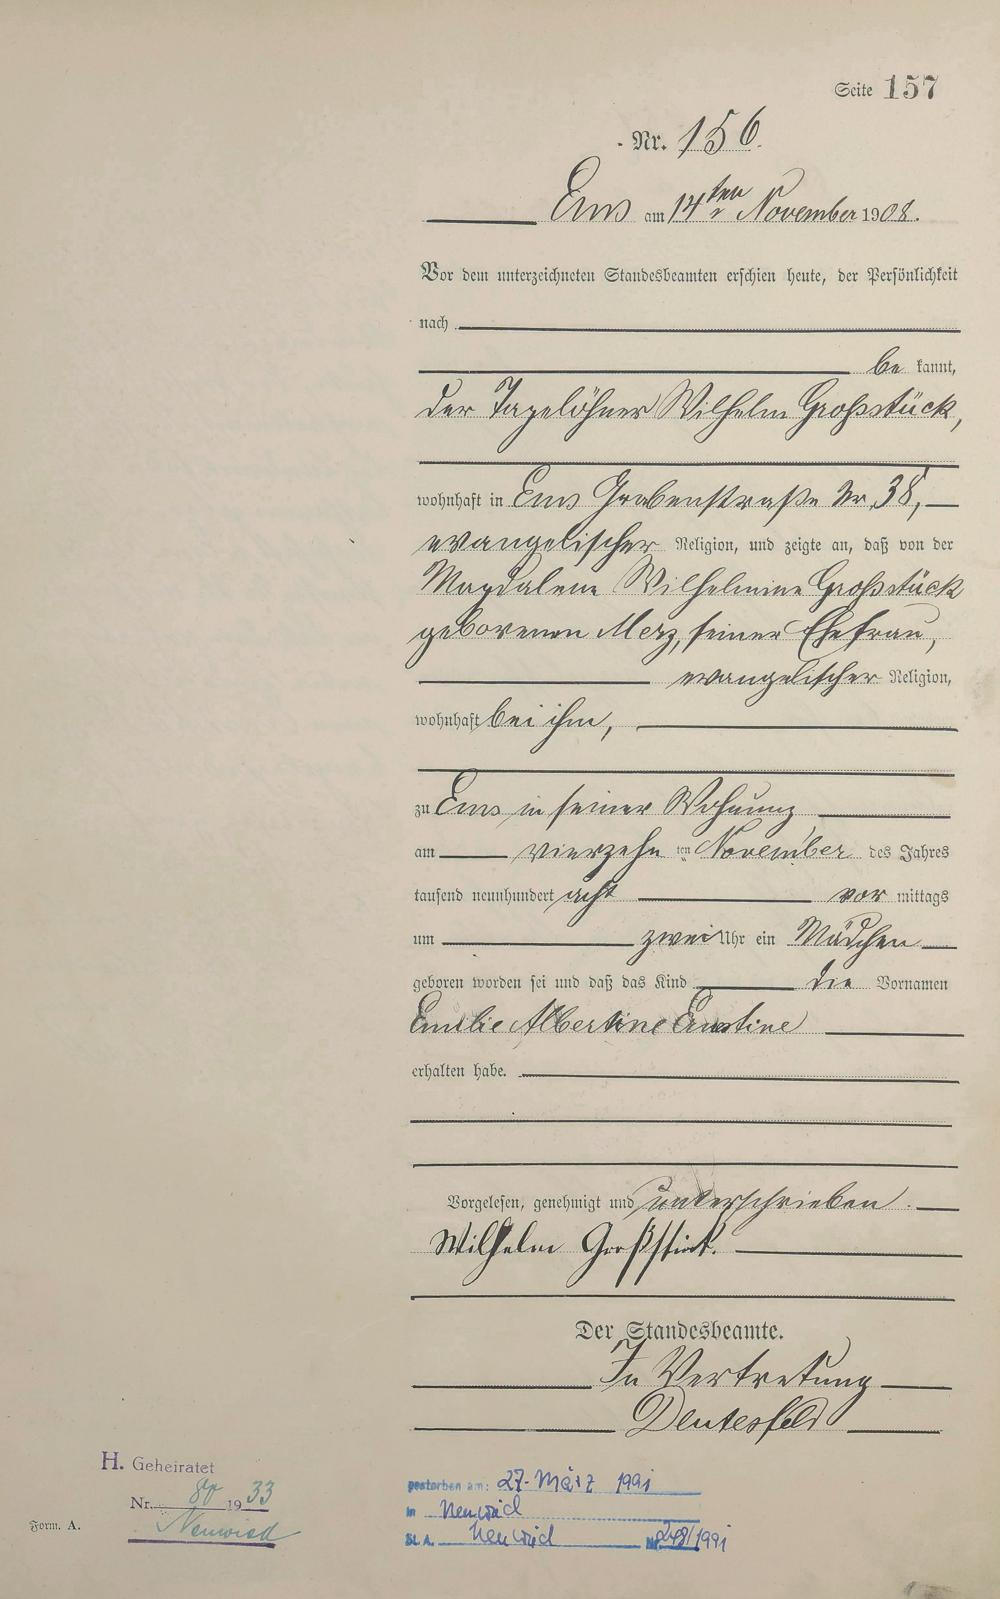 Seite 157
Nr. 156.
Ems am 14ten November 1908.
Vor dem unterzeichneten Standesbeamten erschien heute, der Persönlichkeit
nach
be kannt,
der Tagelöhner Wilhelm Großstück,
wohnhaft in Ems Grabenstraße Nr. 38,
evangelischer Religion, und zeigte an, daß von der
Magdalena Wilhelmine Großstück
geborenen Merz, seiner Ehefrau,
evangelischer Religion,
wohnhaft bei ihm,
zu Ems in seiner Wohnung
am vierzehn ten November des Jahres
tausend neunhundert acht vor mittags
um zwei Uhr ein Mädchen
geboren worden sei und daß das Kind die Vornamen
Emilie Albertine Ernstine
erhalten habe.
Vorgelesen, genehmigt und unterschrieben.
Wilhelm
Der Standesbeamte.
In Vertretung
H. Geheiratet
Nr. 80 1933
Neuwied
Form. A.
gestorben am: 27. März 1991
in Neuwied
St. A. Neuwied Nr. 248/1991